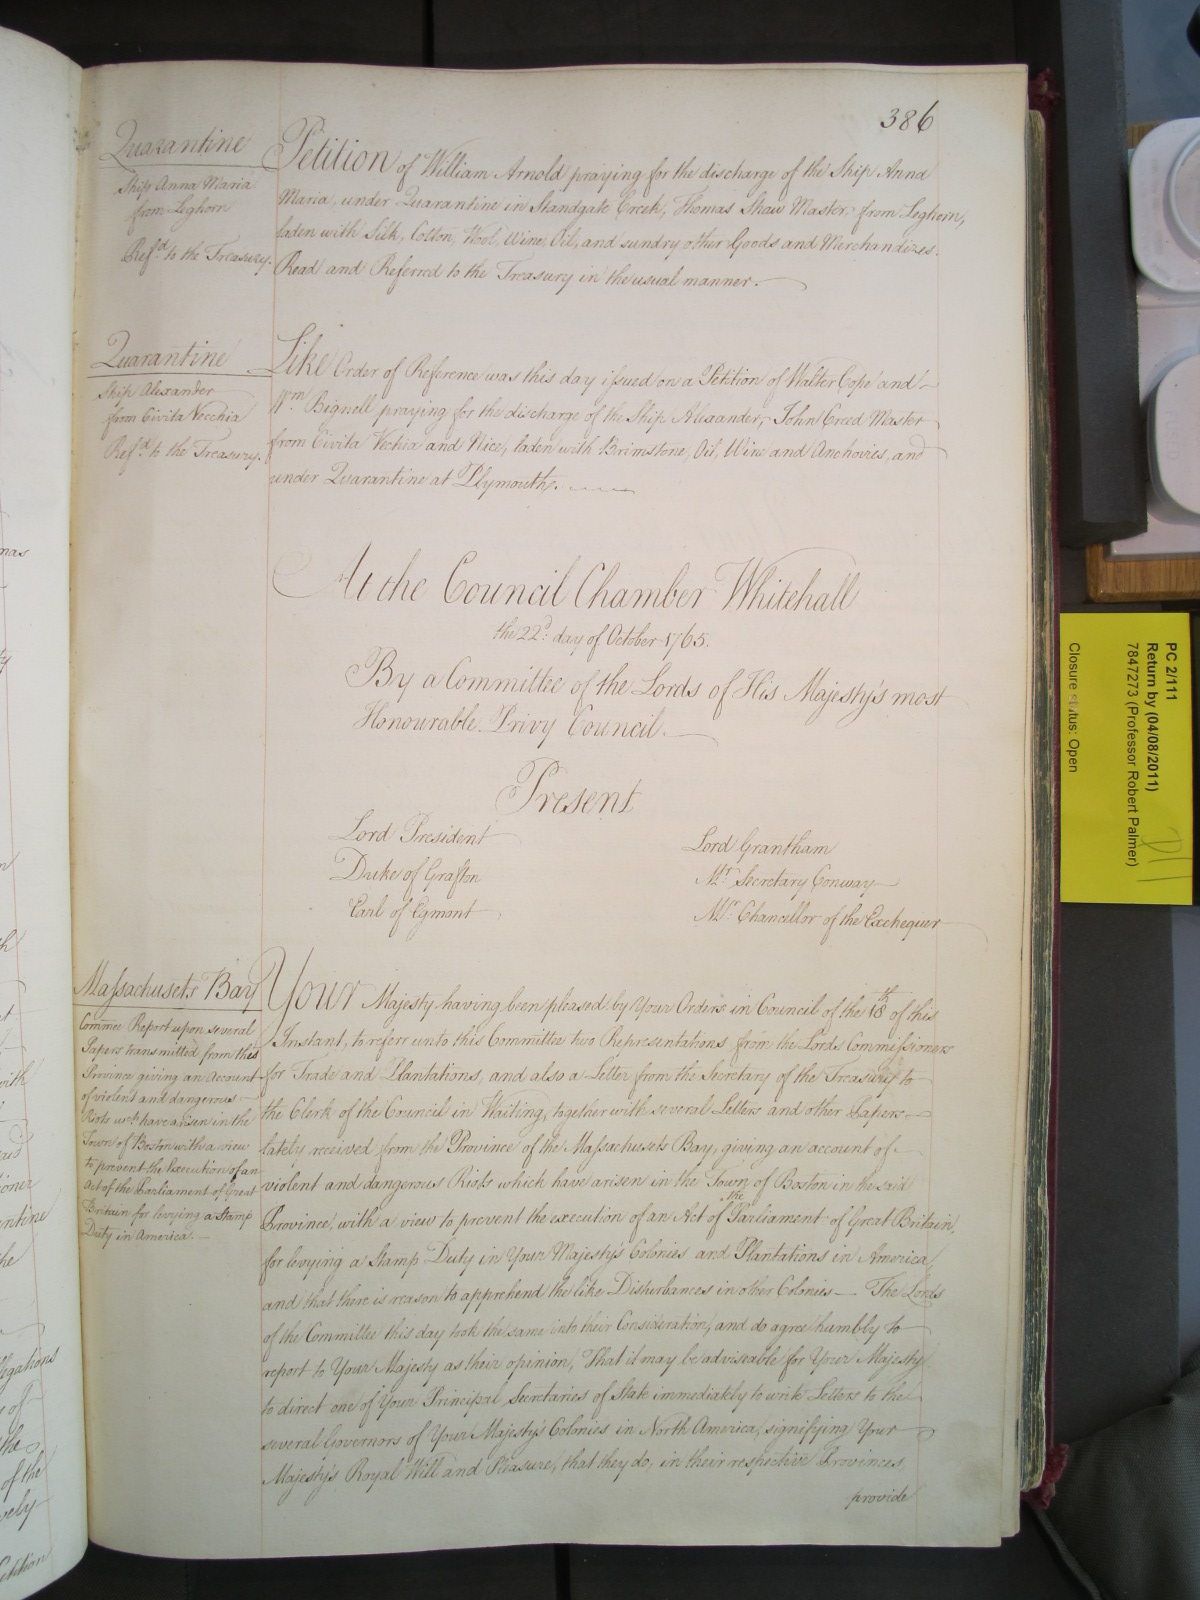 386
Quarantine
Ship Anna Maria
from Leghorn
Ref.d to the Treasury.
Petition of William Arnold praying for the discharge of the Ship Anna
Maria, under Quarantine in Standgate Creek, Thomas Shaw Master, from Leghorn,
laden with Silk, Cotton, Wool, Wine, Oil, and sundry other Goods and Merchandizes.
Read and Referred to the Treasury in the usual manner.
Quarantine
Ship Alexander
from Civita Vecchia
Ref.d to the Treasury.
Like Order of Reference was this day issued on a Petition of Walter Cope and
Wm. Bignell praying for the discharge of the Ship Alexander, John Creed Master
from Civita Vechia and Nice, laden with Brimstone, Oil, Wine and Anchovies, and
under Quarantine at Plymouth.
At the Council Chamber Whitehall
the 22d. day of October 1765.
By a Committee of the Lords of His Majesty's most
Honourable Privy Council.
Present
Lord President
Duke of Grafton
Earl of Egmont
Lord Grantham
Mr. Secretary Conway
Mr. Chancellor of the Exchequer
Massachusets Bay
Commee Report upon several
Papers transmitted from this
Province giving an Account
of violent and dangerous
Riots wch. have arisen in the
Town of Boston with a view
to prevent the Execution of an
Act of the Parliament of Great
Britain for levying a Stamp
Duty in America.
Your Majesty having been pleased by Your Orders in Council of the 18th of this
Instant, to referr unto this Committee two Representations from the Lords Commissioners
for Trade and Plantations, and also a Letter from the Secretary of the Treasury to
the Clerk of the Council in Waiting, together with several Letters and other Papers
lately received from the Province of the Massachusets Bay, giving an account of
violent and dangerous Riots which have arisen in the Town of Boston in the said
Province, with a view to prevent the execution of an Act of the Parliament of Great Britain,
for levying a Stamp Duty in Your Majesty's Colonies and Plantations in America,
and that there is reason to apprehend the like Disturbances in other Colonies — The Lords
of the Committee this day took the same into their Consideration, and do agree humbly to
report to Your Majesty as their opinion, That it may be adviseable for Your Majesty
to direct one of Your Principal Secretaries of State immediately to write Letters to the
several Governors of Your Majesty's Colonies in North America, signifying Your
Majesty's Royal Will and Pleasure, that they do, in their respective Provinces,
provide
PC 2/111
Return by (04/08/2011)
7847273 (Professor Robert Palmer)
Closure status: Open